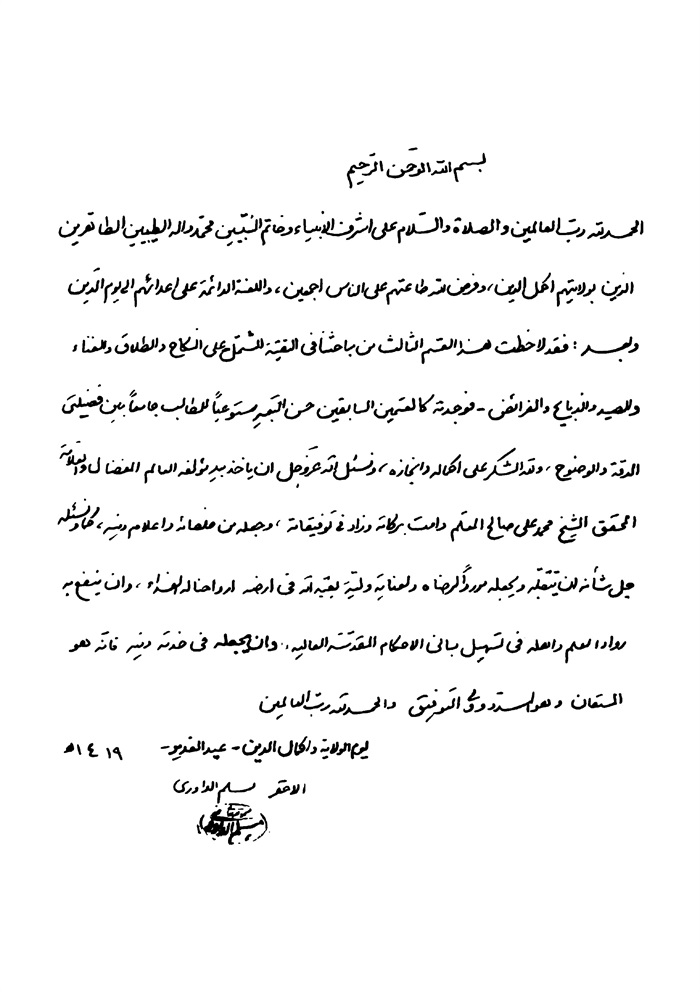 بسم الله الرحمن الرحيم
الحمد لله رب العالمين والصلاة والسلام على اشرف الأنبياء وخاتم النبيين محمد واله الطيبين الطاهرين
الذين بولايتهم اكمل الدين، وفرض الله طاعتهم على الناس اجمعين، واللعنة الدائمة على اعدائهم الى يوم الدين
وبعد: فقد لاحظت هذا القسم الثالث من باحثنا في التقية المشتمل على النكاح والطلاق والقضاء
والصيد والذبايح والفرائض - فوجدته كالقسمين السابقين حسن التعبير مستوعباً للمطالب جامعاً بين فضيلتي
الدقة والوضوح، ولله الشكر على اكماله وانجازه، ونسئل الله عز وجل ان ياخذ بيد مؤلفه العالم المفضال والعلامة
المحقق الشيخ محمد علي صالح المعلم دامت بركاته وزاد في توفيقاته، وجعله من علمائه واعلام دينه، كما ونسئله
جل شأنه ان يتقبله ويجعله مورداً لرضاه ولعناية وليه بقية الله في ارضه ارواحنا له الفداء، وان ينفع به
رواد العلم واهله في تسهيل مباني الاحكام المقدسة العالية، وان يجعله في خدمة دينه فانه هو
المستعان وهو المسدد وولي التوفيق والحمد لله رب العالمين
يوم الولاية واكمال الدين - عيد الغدير - ١٤١٩هـ
الاحقر مسلم الداوري